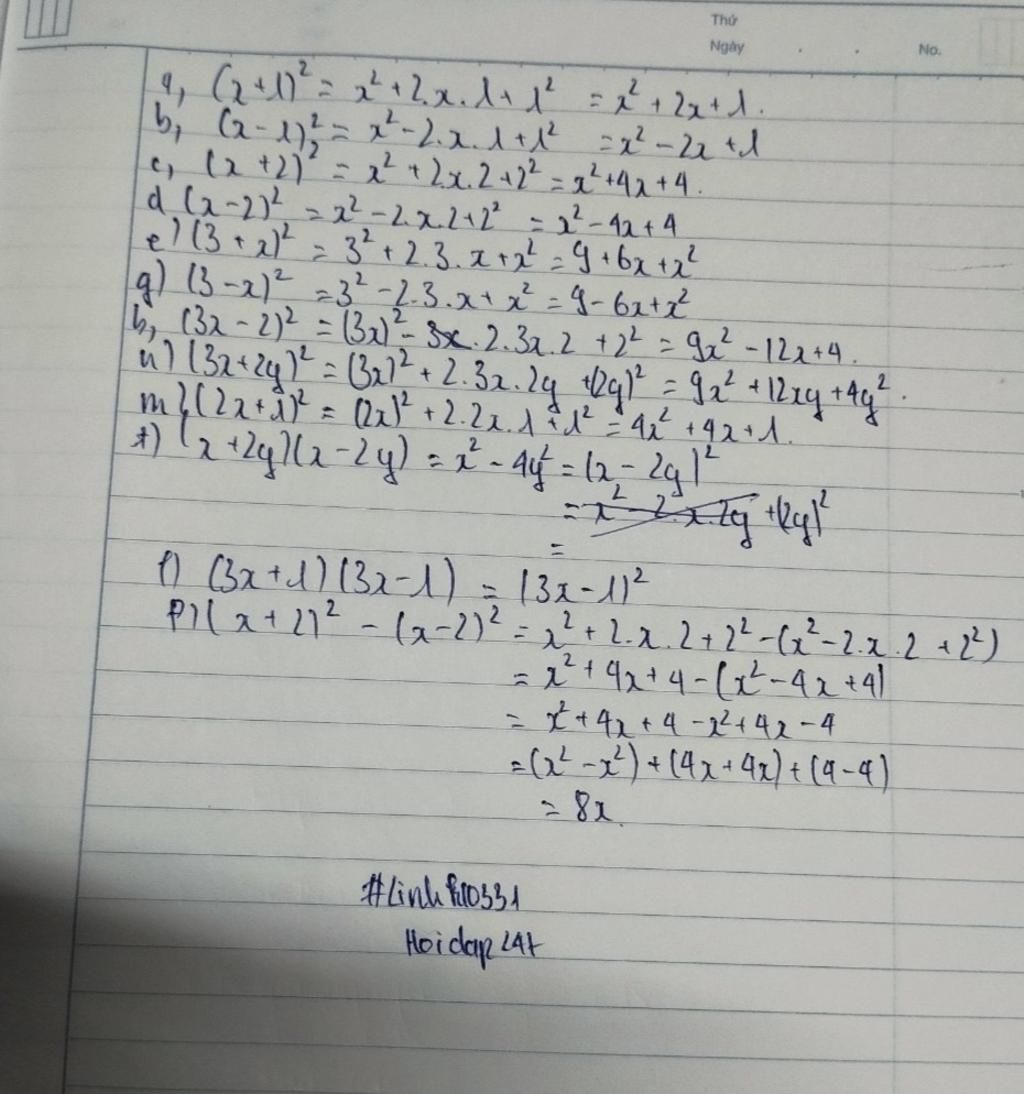 Thứ
Ngày . . No.
a, (x+1)² = x²+2.x.1+1² = x²+2x+1.
b, (x-1)² = x²-2.x.1+1² = x²-2x+1
c, (x+2)² = x²+2x.2+2² = x²+4x+4.
d (x-2)² = x²-2.x.2+2² = x²-4x+4
e) (3+x)² = 3²+2.3.x+x² = 9+6x+x²
g) (3-x)² = 3²-2.3.x+x² = 9-6x+x²
h, (3x-2)² = (3x)²-3x.2.3x.2+2² = 9x²-12x+4.
n) (3x+2y)² = (3x)²+2.3x.2y+(2y)² = 9x²+12xy+4y².
m) (2x+1)² = (2x)²+2.2x.1+1² = 4x²+4x+1.
(x+2y)(x-2y) = x²-4y² = (x-2y)²
= x²-2.x.2y+(2y)²
=
(3x+1)(3x-1) = (3x-1)²
P) (x+2)²-(x-2)² = x²+2.x.2+2²-(x²-2.x.2+2²)
= x²+4x+4-(x²-4x+4)
= x²+4x+4-x²+4x-4
= (x²-x²)+(4x+4x)+(4-4)
= 8x.
Hoidap24